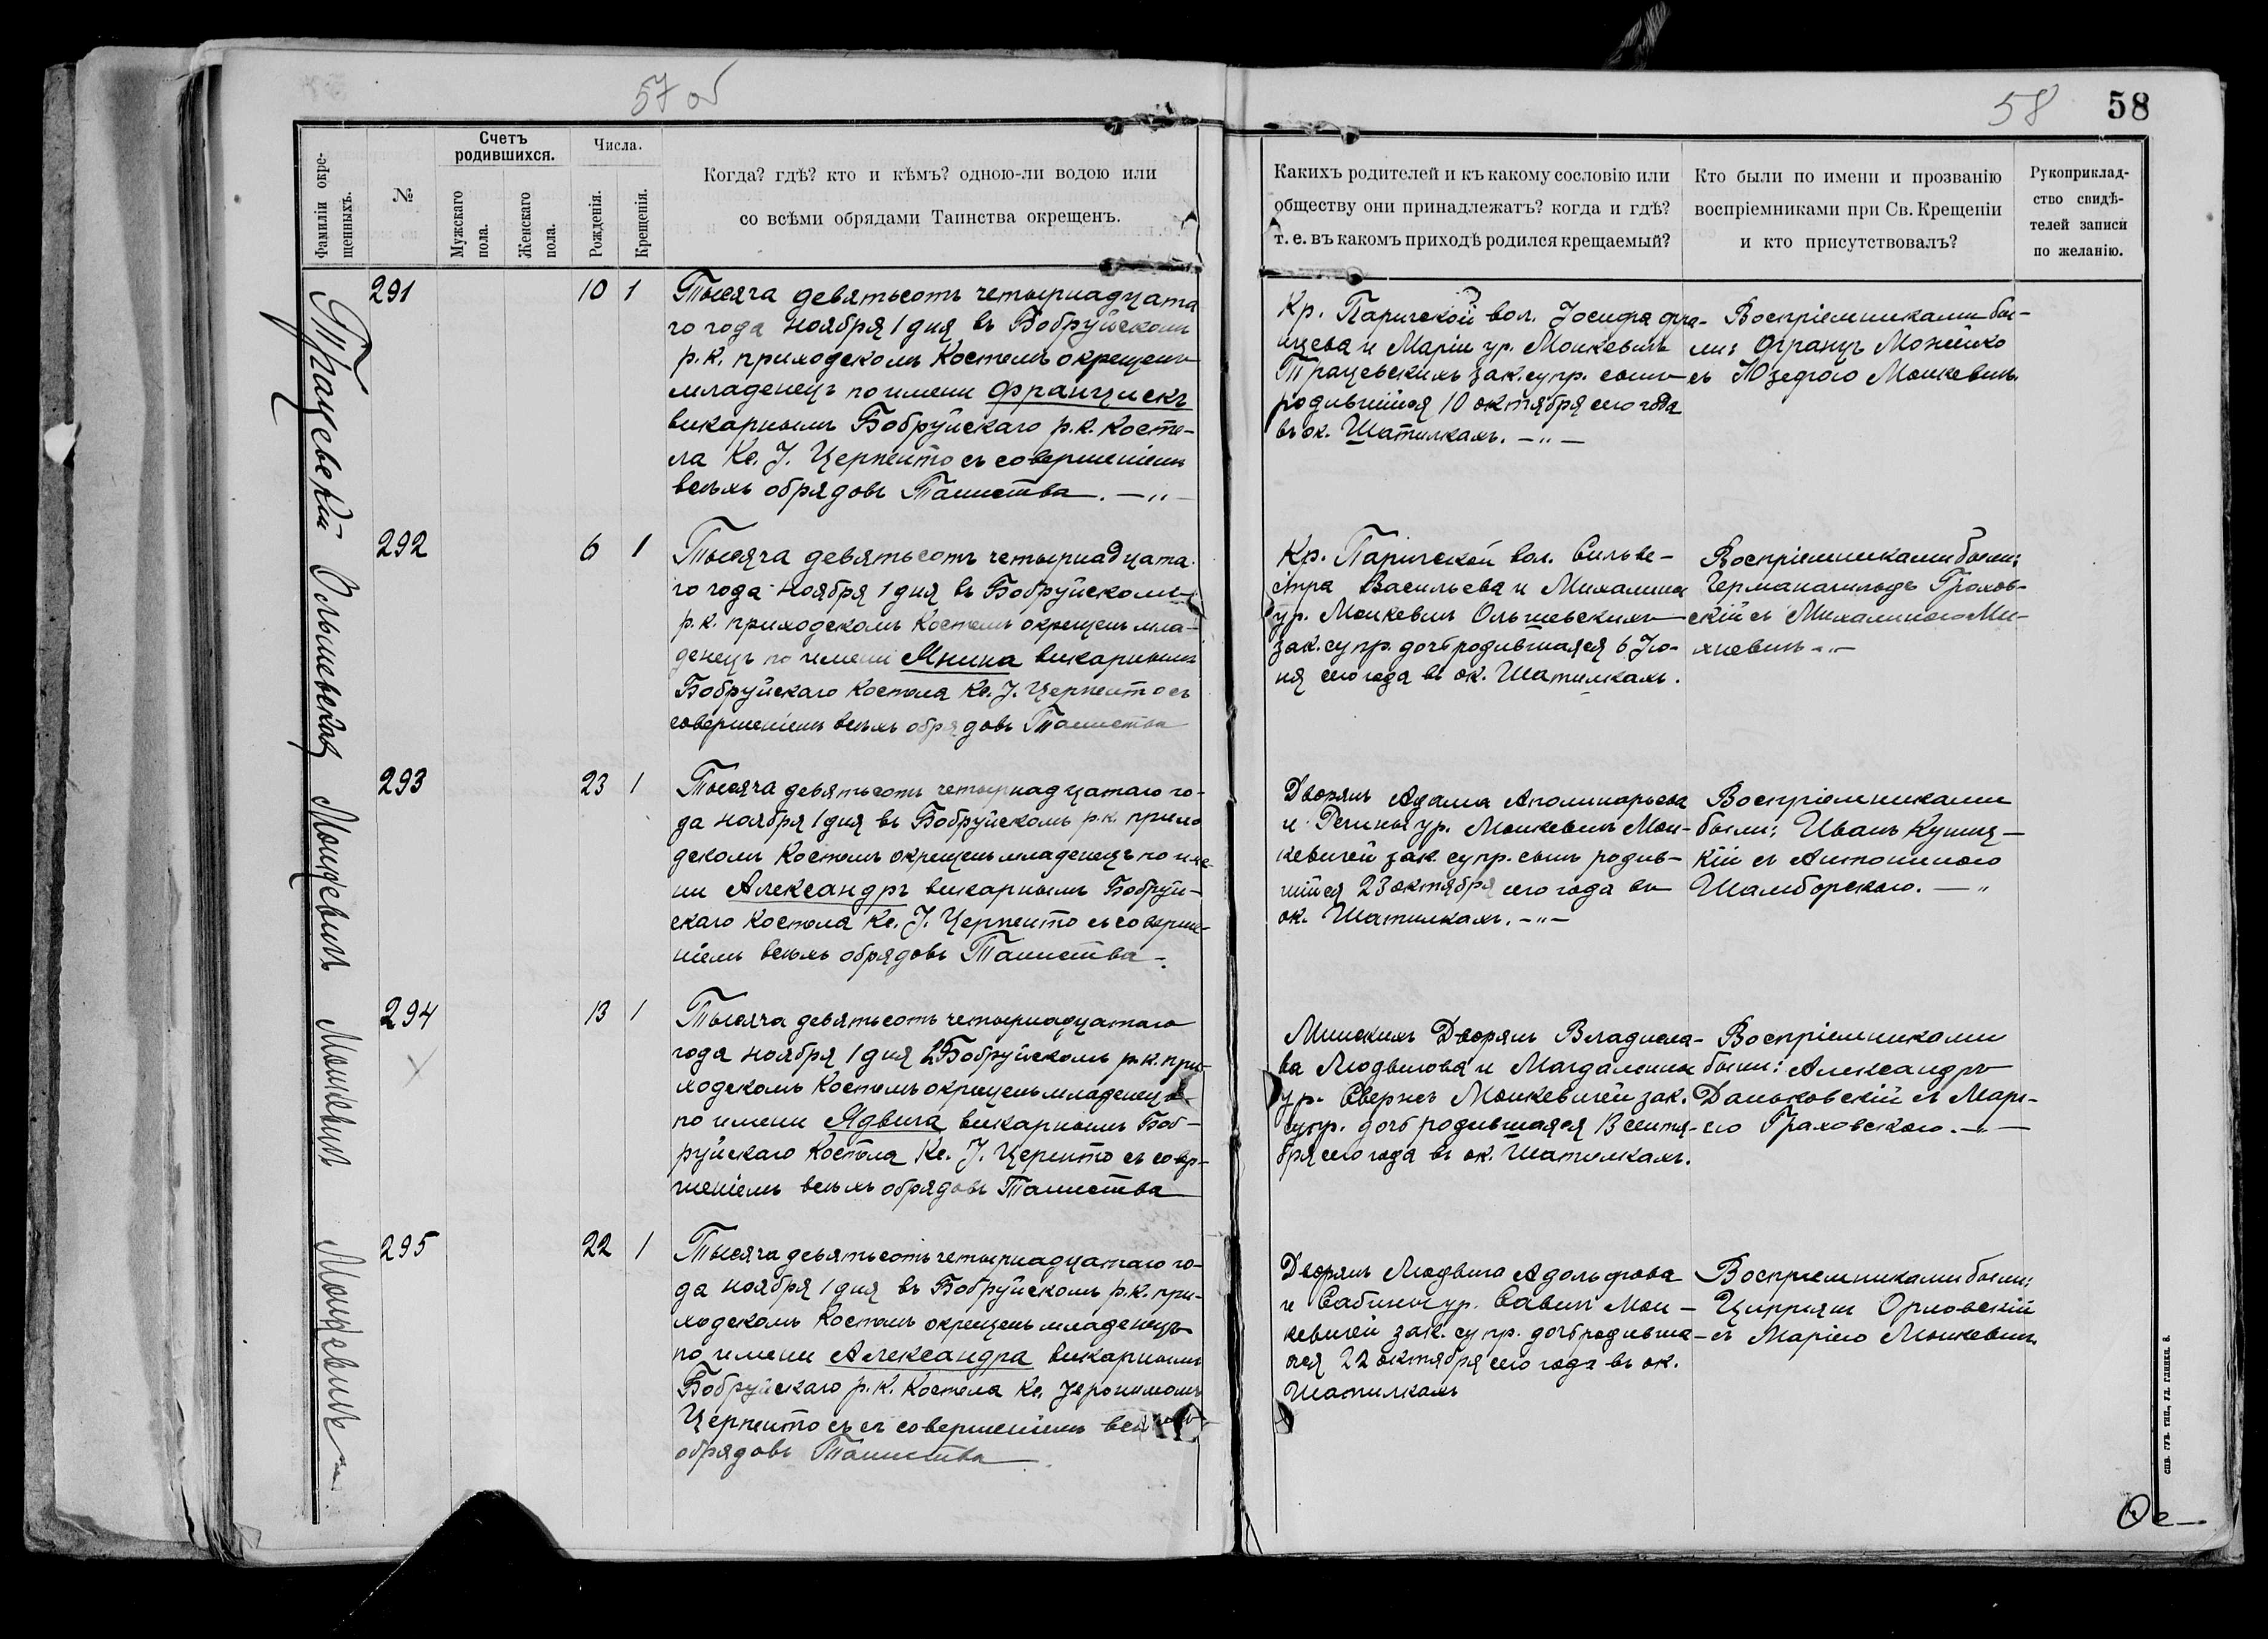 57 об
58
58
Фамиліи окре-
щенныхъ.
№
Счетъ
родившихся.
Мужскаго
пола.
Женскаго
пола.
Числа.
Рожденія.
Крещенія.
Когда? гдѣ? кто и кѣмъ? одною-ли водою или
со всѣми обрядами Таинства окрещенъ.
Какихъ родителей и къ какому сословію или
обществу они принадлежатъ? когда и гдѣ?
т. е. въ какомъ приходѣ родился крещаемый?
Кто были по имени и прозванію
воспріемниками при Св. Крещеніи
и кто присутствовалъ?
Рукоприклад-
ство свидѣ-
телей записи
по желанію.
291
10 1
Тысяча девятьсотъ четырнадцата
го года ноября 1 дня въ Бобруйскомъ
р. к. приходскомъ Костелѣ окрещенъ
младенецъ по имени Францискъ
викарнымъ Бобруйскаго р. к. Косте-
ла Кс. І. Церпенто съ совершеніемъ
всѣхъ обрядовъ Таинства. —„—
Кр. Паричской вол. Іосифа Фра-
нцева и Маріи ур. Монкевичъ
Трацевскихъ зак. супр. сынъ
родившійся 10 октября сего года
въ ок. Шатилкахъ. —„—
Воспріемниками бы-
ли: Францъ Можейко
съ Юзефою Монкевичъ.
292
6 1
Тысяча девятьсотъ четырнадцата
го года ноября 1 дня въ Бобруйскомъ
р. к. приходскомъ Костелѣ окрещенъ мла-
денецъ по имени Янина викарнымъ
Бобруйскаго Костела Кс. І. Церпенто съ
совершеніемъ всѣхъ обрядовъ Таинства
Ольшевская
Кр. Паричской вол. Сильве-
стра Васильева и Михалины
ур. Монкевичъ Ольшевскихъ
зак. супр. дочь родившаяся 6 Ію-
ня сего года въ ок. Шатилкахъ.
Воспріемниками были:
съ Михалиною Ми-
хневичъ —„—
293
23 1
Тысяча девятьсотъ четырнадцатаго го-
да ноября 1 дня въ Бобруйскомъ р. к. прихо
дскомъ Костелѣ окрещенъ младенецъ по име-
ни Александръ викарнымъ Бобруй-
скаго Костела Кс. І. Церпенто съ соверше-
ніемъ всѣхъ обрядовъ Таинства.
Монкевичъ
Дворянъ Адама Аполинарьева
и ур. Монкевичъ Мон-
кевичей зак. супр. сынъ родив-
шійся 23 октября сего года въ
ок. Шатилкахъ. —„—
Воспріемниками
были: Иванъ
съ Антониною
Шамборскою. —„
294
13 1
Тысяча девятьсотъ четырнадцатаго
года ноября 1 дня въ Бобруйскомъ р. к. при-
ходскомъ Костелѣ окрещенъ младенецъ
по имени Ядвига викарнымъ Боб-
руйскаго Костела Кс. І. Церпенто съ совер-
шеніемъ всѣхъ обрядовъ Таинства
Монкевичъ
Минскихъ Дворянъ Владисла-
ва Людвигова и Магдалины
ур. Свержъ Монкевичей зак.
супр. дочь родившаяся 13 сентя-
бря сего года въ ок. Шатилкахъ.
Воспріемниками
были: Александръ
Даньковскій съ Мари-
ею Граховскою. —„—
295
22 1
Тысяча девятьсотъ четырнадцатаго го-
да ноября 1 дня въ Бобруйскомъ р. к. при-
ходскомъ Костелѣ окрещенъ младенецъ
по имени Александра викарнымъ
Бобруйскаго р. к. Костела Кс. Іеронимомъ
Церпенто съ съ совершеніемъ всѣхъ
обрядовъ Таинства
Монкевичъ
Дворянъ Людвига Адольфова
и Сабины ур. Савичъ Мон-
кевичей зак. супр. дочь родивша-
яся 22 октября сего года въ ок.
Шатилкахъ
Воспріемниками были:
Ципріянъ Орловскій
съ Маріею Монкевичъ
спб. губ. тип., ул. глинки. 8.